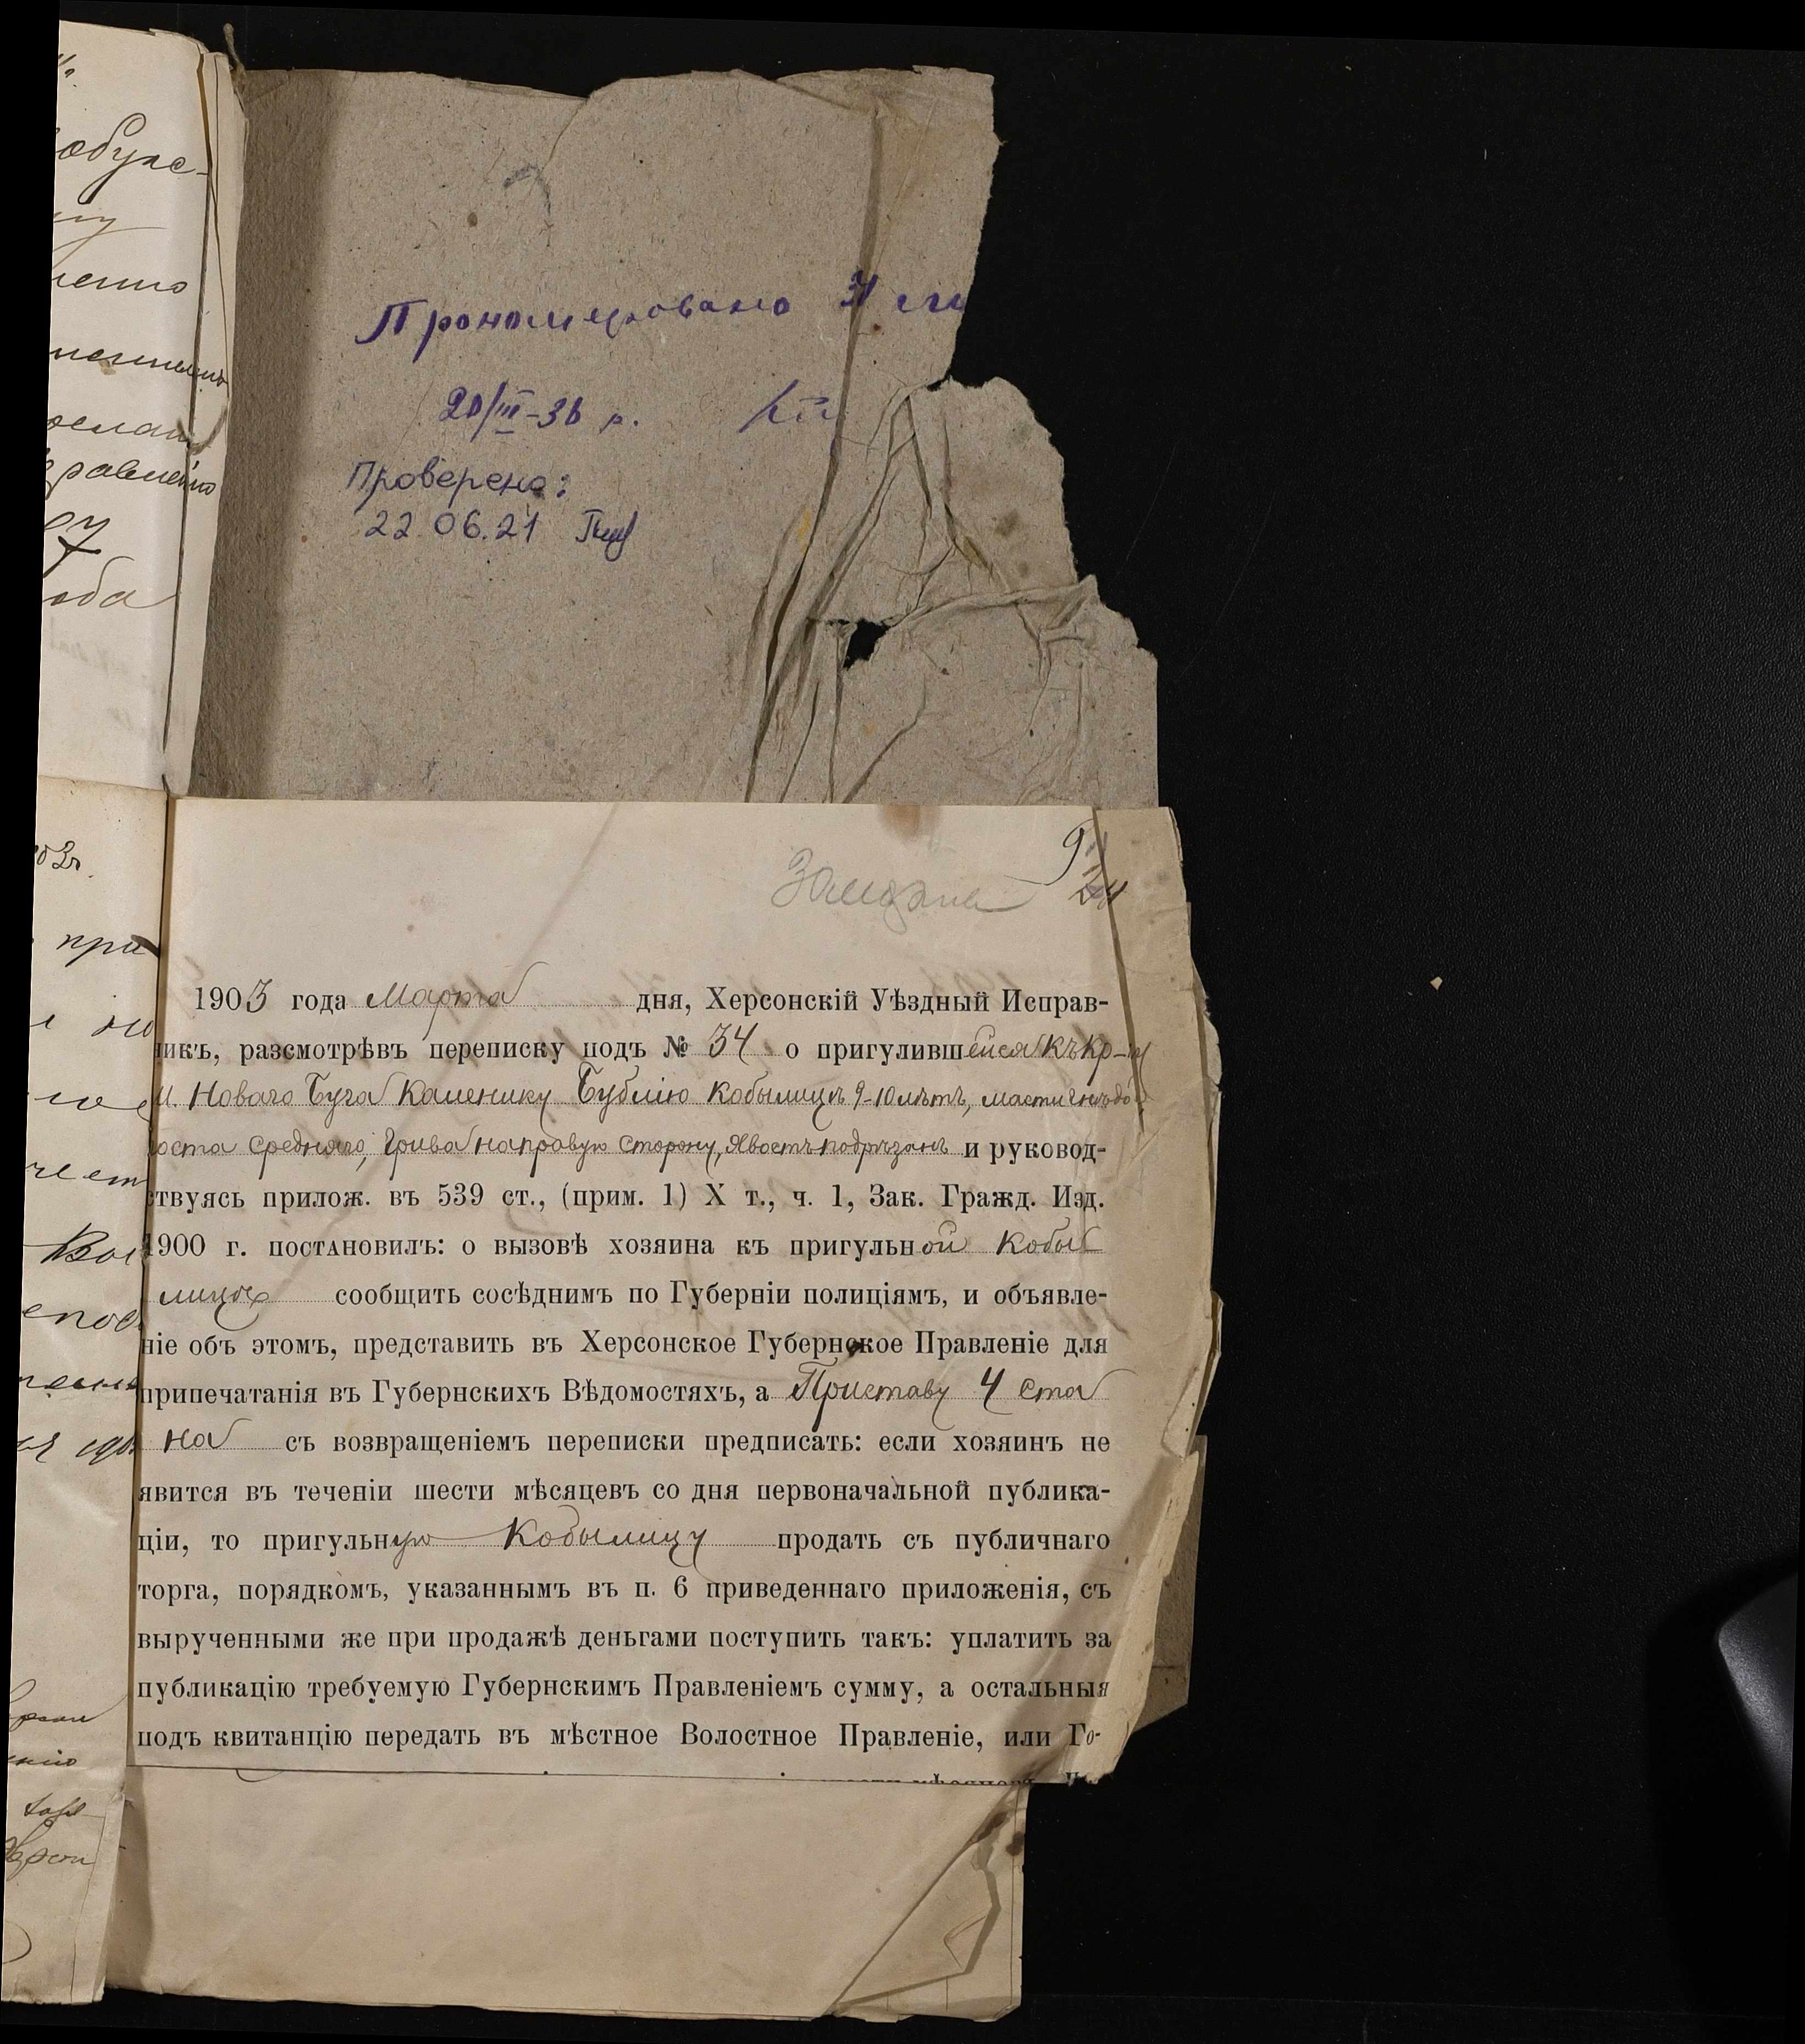 Прономеровано 31
20/III-36 р.
Проверено:
22.06.21
обуле-
при
1903 года Марта дня, Херсонскій Уѣздный Исправ-
никъ, разсмотрѣвъ переписку подъ № 34 о пригулившейся къ кр-ну
м. Новаго Буга Каленику Бублію кобылицѣ 9-10 лѣтъ, масти гнѣдо
роста средняго, грива на правую сторону, хвостъ подрѣзанъ и руковод-
ствуясь прилож. въ 539 ст., (прим. 1) X т., ч. 1, Зак. Гражд. Изд.
1900 г. постановилъ: о вызовѣ хозяина къ пригульной кобы
лицѣ сообщить сосѣднимъ по Губерніи полиціямъ, и объявле-
ніе объ этомъ, представить въ Херсонское Губернское Правленіе для
припечатанія въ Губернскихъ Вѣдомостяхъ, а Приставу 4 ста
на съ возвращеніемъ переписки предписать: если хозяинъ не
явится въ теченіи шести мѣсяцевъ со дня первоначальной публика-
ціи, то пригульную Кобылицу продать съ публичнаго
торга, порядкомъ, указаннымъ въ п. 6 приведеннаго приложенія, съ
вырученными же при продажѣ деньгами поступить такъ: уплатить за
публикацію требуемую Губернскимъ Правленіемъ сумму, а остальныя
подъ квитанцію передать въ мѣстное Волостное Правленіе, или Го-